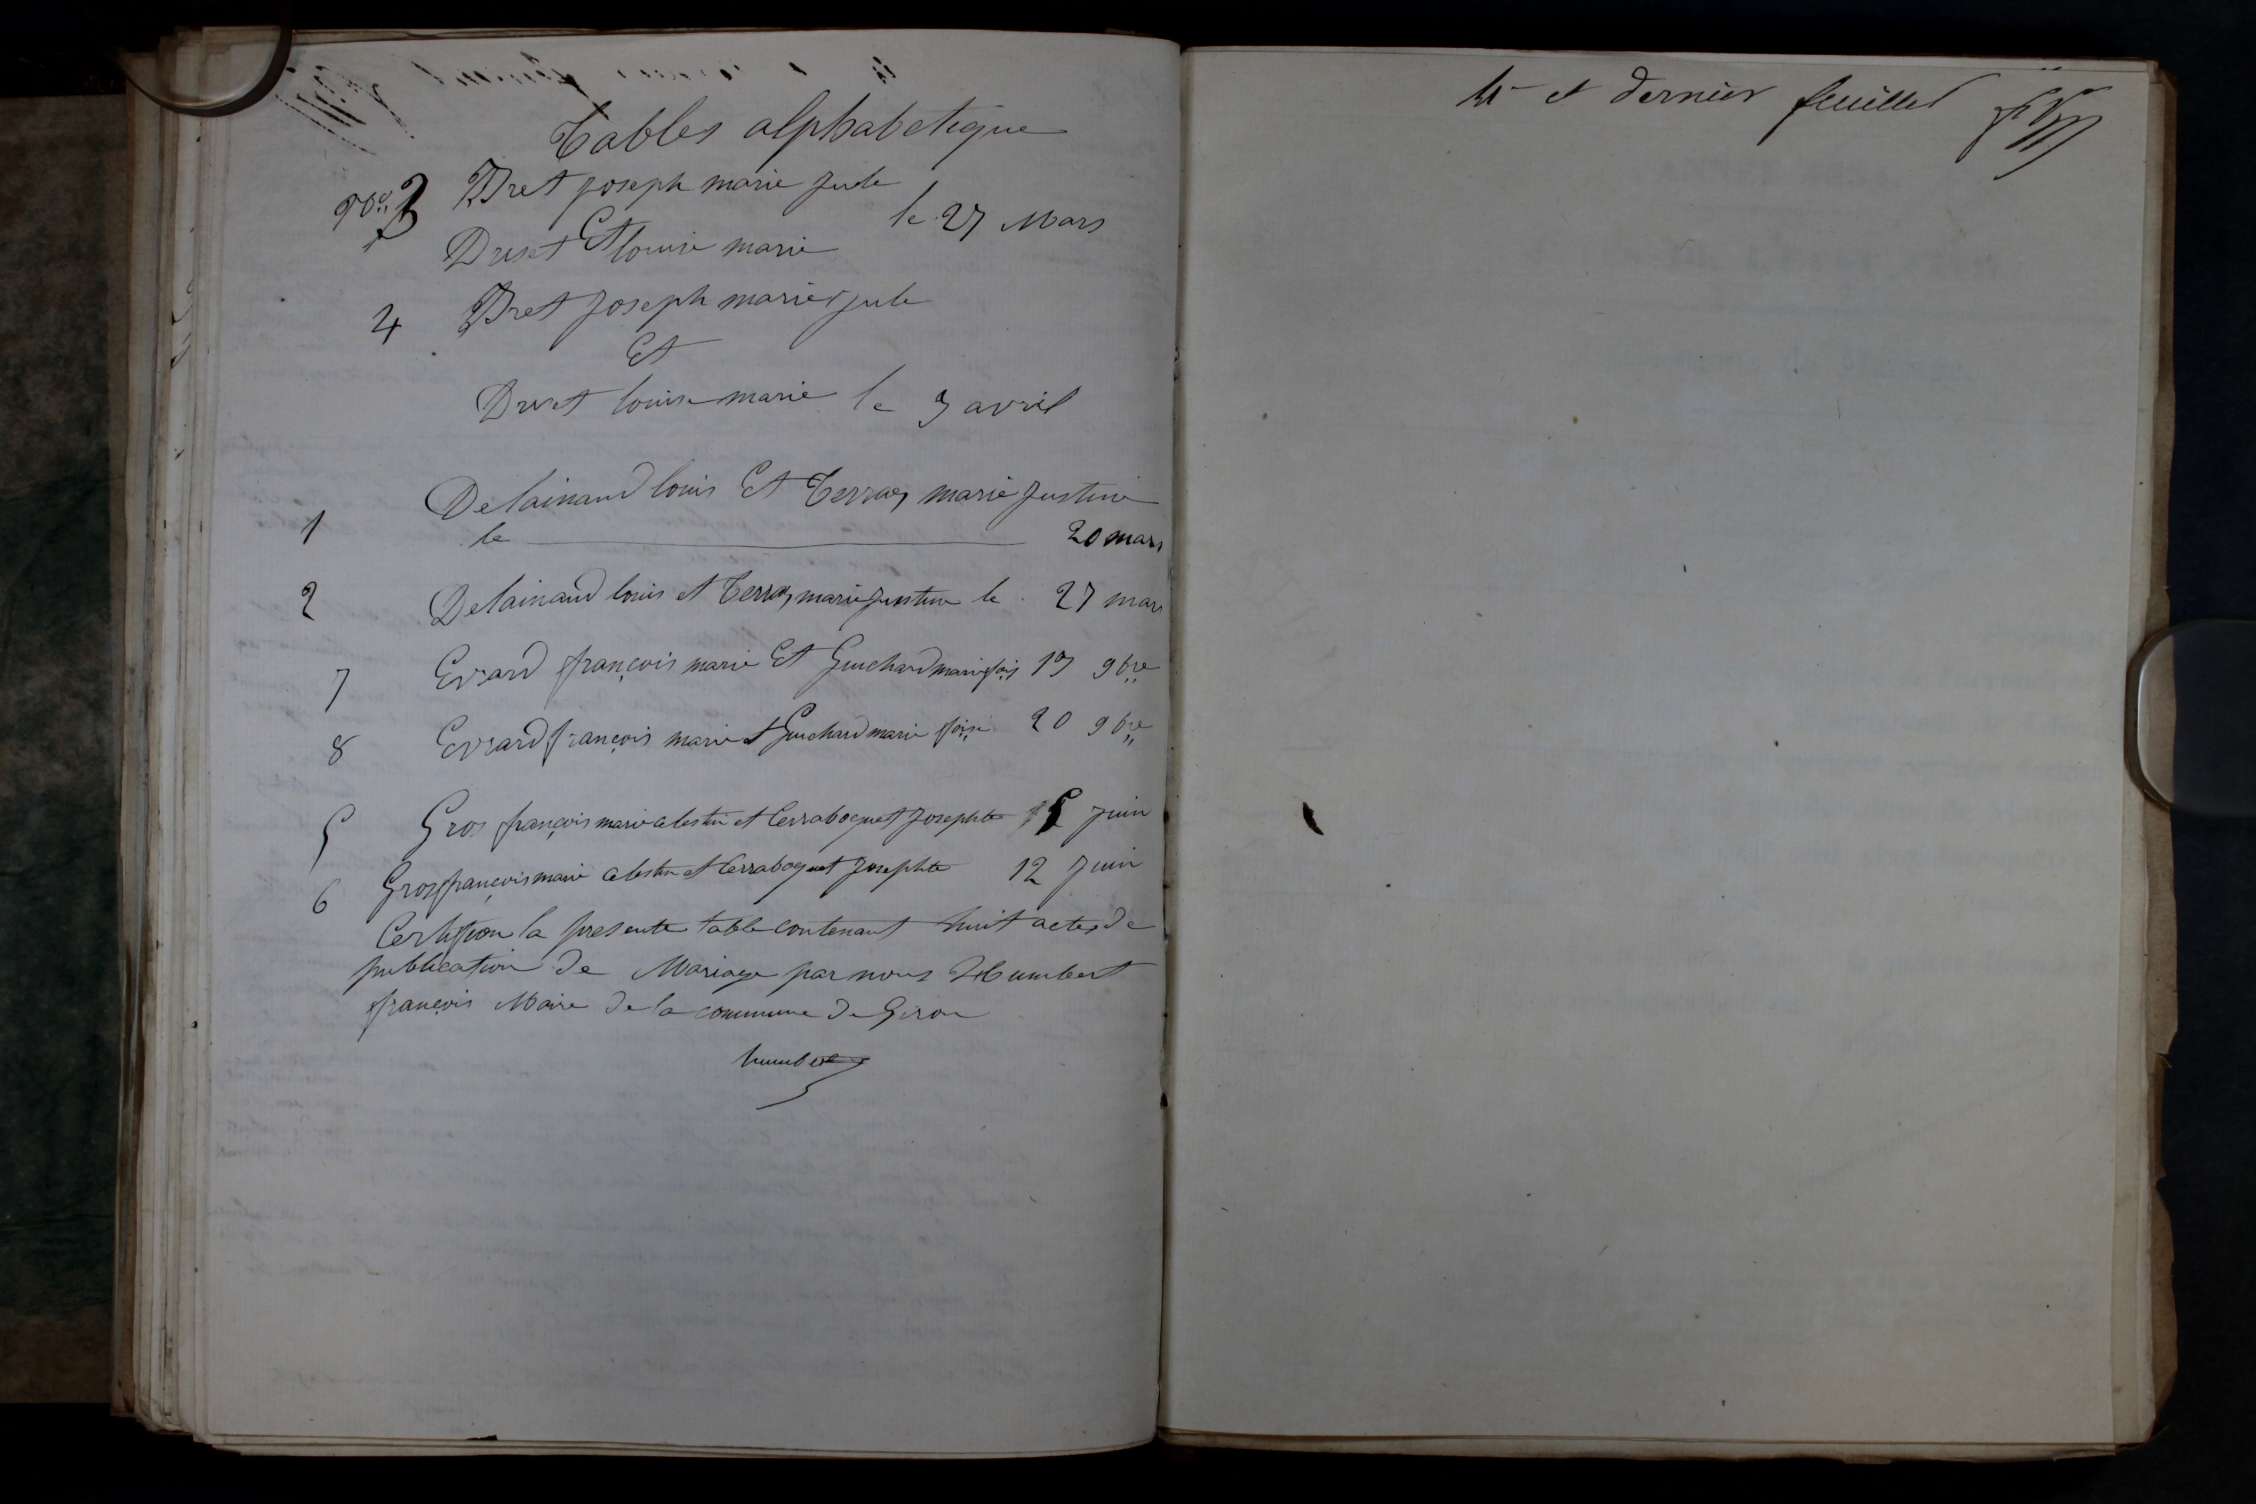 Tables alphabetique
Nos 3 Bret joseph marie jule
le 27 Mars
Druet Et louise marie
4 Bret Joseph marie jule
Et
Druet louise marie le 3 avril
Delainaud louis Et Terraz marie justine
1 le 20 mars
2 Delainaud louis et Terraz marie justine le 27 mars
7 Evrard françois marie Et Guichard marie fçois 13 9bre
8 Evrard françois marie et Guichard marie fçoise 20 9bre
5 Gros françois marie celestin et Cerraboquet Josephte 5 juin
6 Gros françois marie celestin et Cerraboquet Josephte 12 juin
Certiffion la presente table contenant huit actes de
publication de Mariage par nous Humbert
françois Maire de la commune de Giron
humbert
et dernier feuillet